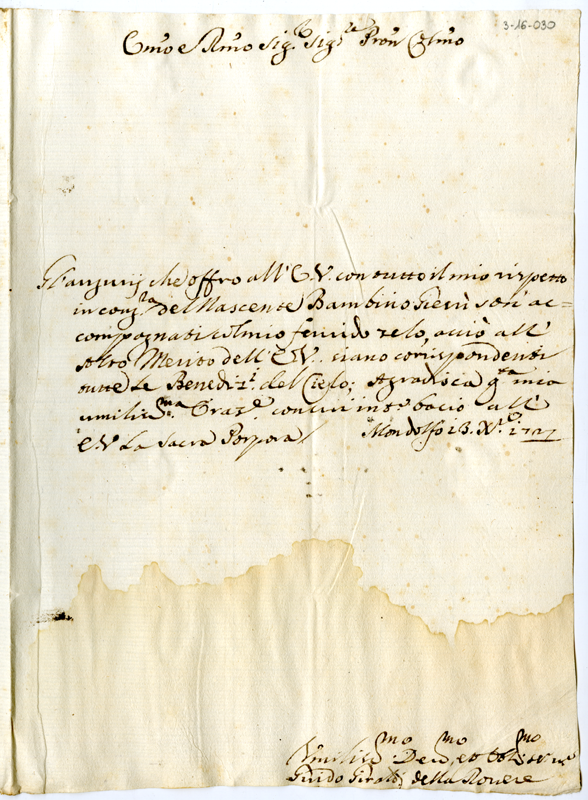 3-16-030
Emo e Rmo Sig.r Sig.r Pron Colmo
Gl'augurij che offro all'E.V. con tutto il mio rispetto
in cong.ra del Nascente Bambino Giesù son' ac=
compagnati col mio fervido zelo, acciò all'
Altro Merito dell'E.V. siano corrispondenti
tutte le Benediz.i del Cielo; Agradisca q.ta mia
umiliss.ma con cui int.o bacio all'
E.V. la Sacra Porpora Mondolfo 13. X.e 1727
Umiliss.mo Dev.mo et Obl.mo
Guido Girald della Rovere